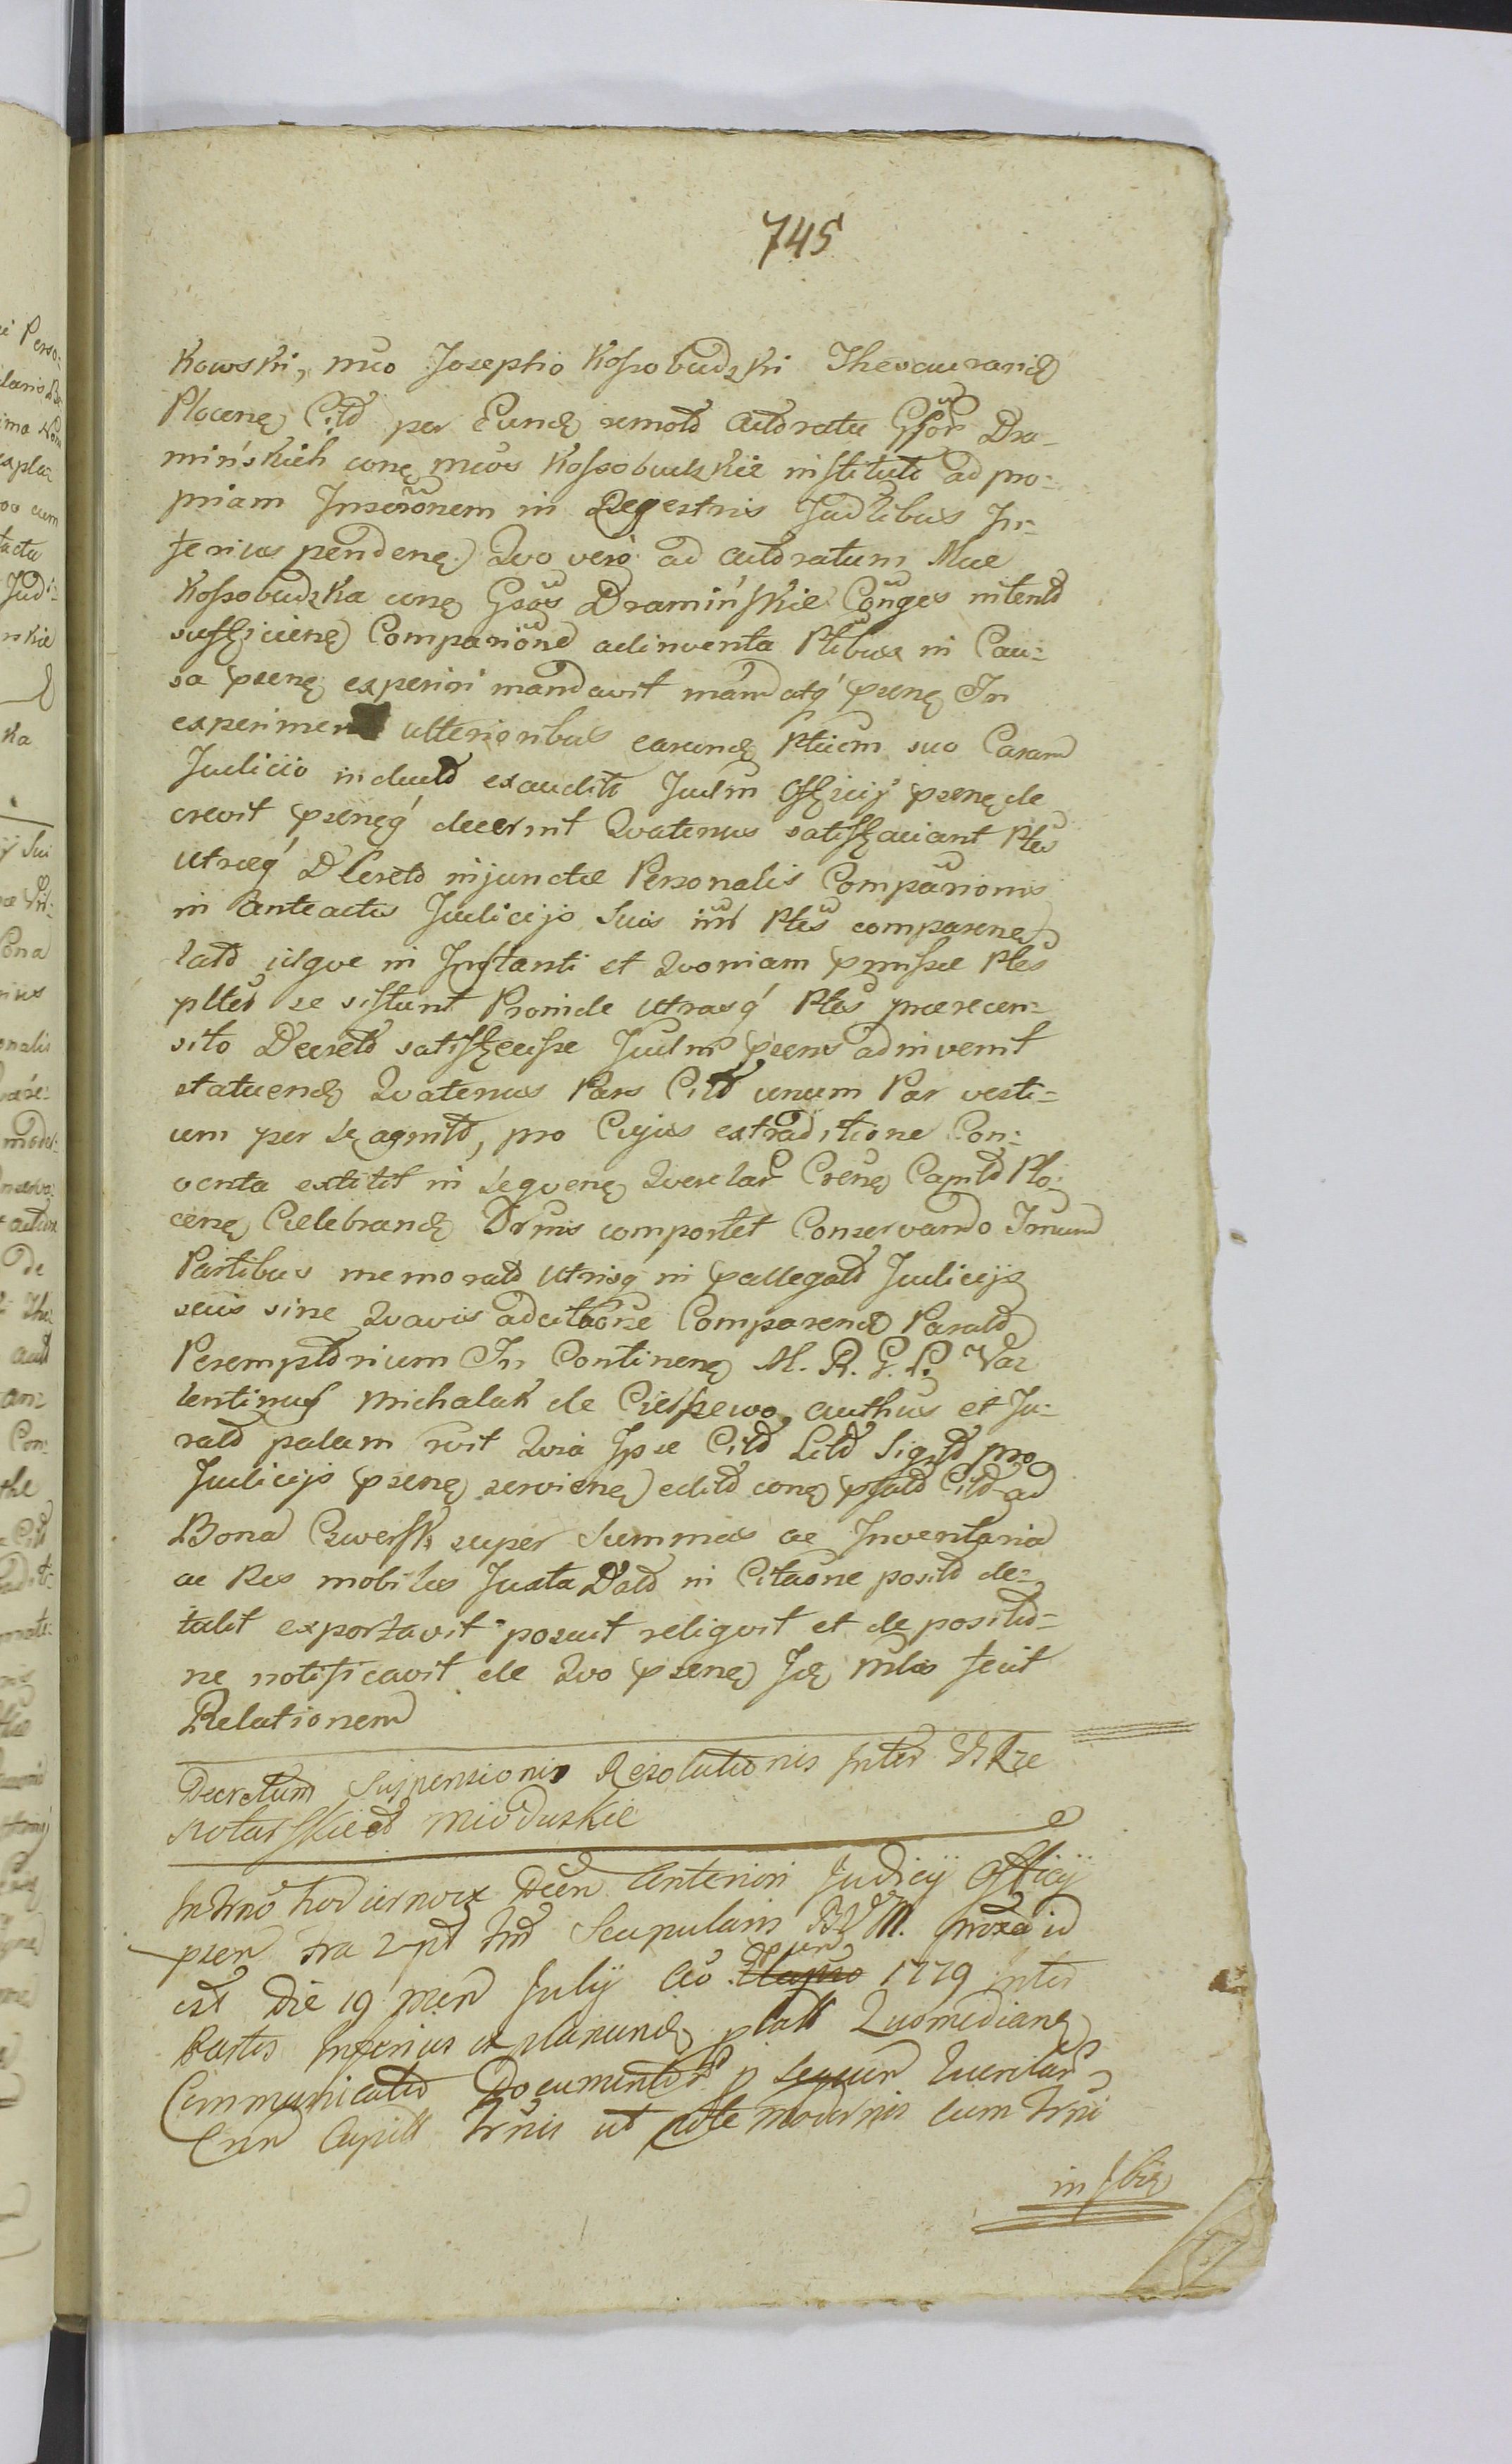 745
Kowski, mco Josepho Kossobudzki Thesaurarid
Plocenę Citd per Eundę remotd Actoratu Gsor Dra-
mińskich conę mcos Kossobudzkie institutd ad pro-
priam Inscrionem in Regestris Judlibus In-
ferius pendenę) Quo vero ad Actoratum Mae
Kossobudzka conę Gsos Dramińskie Conges intentd
sufficienę Comparione adinventa Ptibus in Cau-
sa psenę experiri mandavit mandatq psenę In
experimen ulterioribus earundę Ptium suo Coram
Judicio inductd exauditis Judm Officij psenę de
crevit psenęq decernit Quatenus satisfaciant Ptes
utraeq Decretd injunctae Personalis Comparionis
in anteactis Judicijs Suis Ptes comparenę
latd usque in Instanti et Quoniam pmissae Ptes
pltes se sistunt Proinde utrasq Ptes praerecen-
sito Decretd satisfecisse Judm psens adinvenit
statuendę Quatenus Pars Citd unum Par vesti-
um per se agnitd, pro Cujus extraditione Con-
venta extitit in sequenę Querelar Crenę Capitd Plo-
cenę Celebrandę Drnis comportet Conservando Imund
Partibus memoratd utrisq in pallegatd Judicijs
suis sine Quavis adcitaone Comparendę Paratd
Peremptorium In Continenę M. R. G. L. Va-
lentinus Michalak de Ciessewo, authus et Ju-
ratd palam rvit Quia Ipse Citd Littd Sigtd pro
Judicijs psenę servienę) editd conę psatd Citd ad
Bona Cwersk super Summas ac Inventaria
ac Res mobiles Juxta Datd in Citaone positd de-
tulit exportavit posuit reliquit et de positio-
ne notificavit de Quo psenę Idę Mlis fecit
Relationem
Decretum Suspensionis Resolutionis Inter
Rotarskie et Mioduskie
In Trno hodierno ex Decr Anteriori Judicij Officij
psen fra 2 pt fest Scapularis BVM. proxa id
est Die 19 men Julij Ao 1779 Inter
Partes Inferius explanandę platt Quomedianę
Communicatis Documentis p sequen Querelar
Cren Capitt Trnis ut Acte modernis cum Trni
in